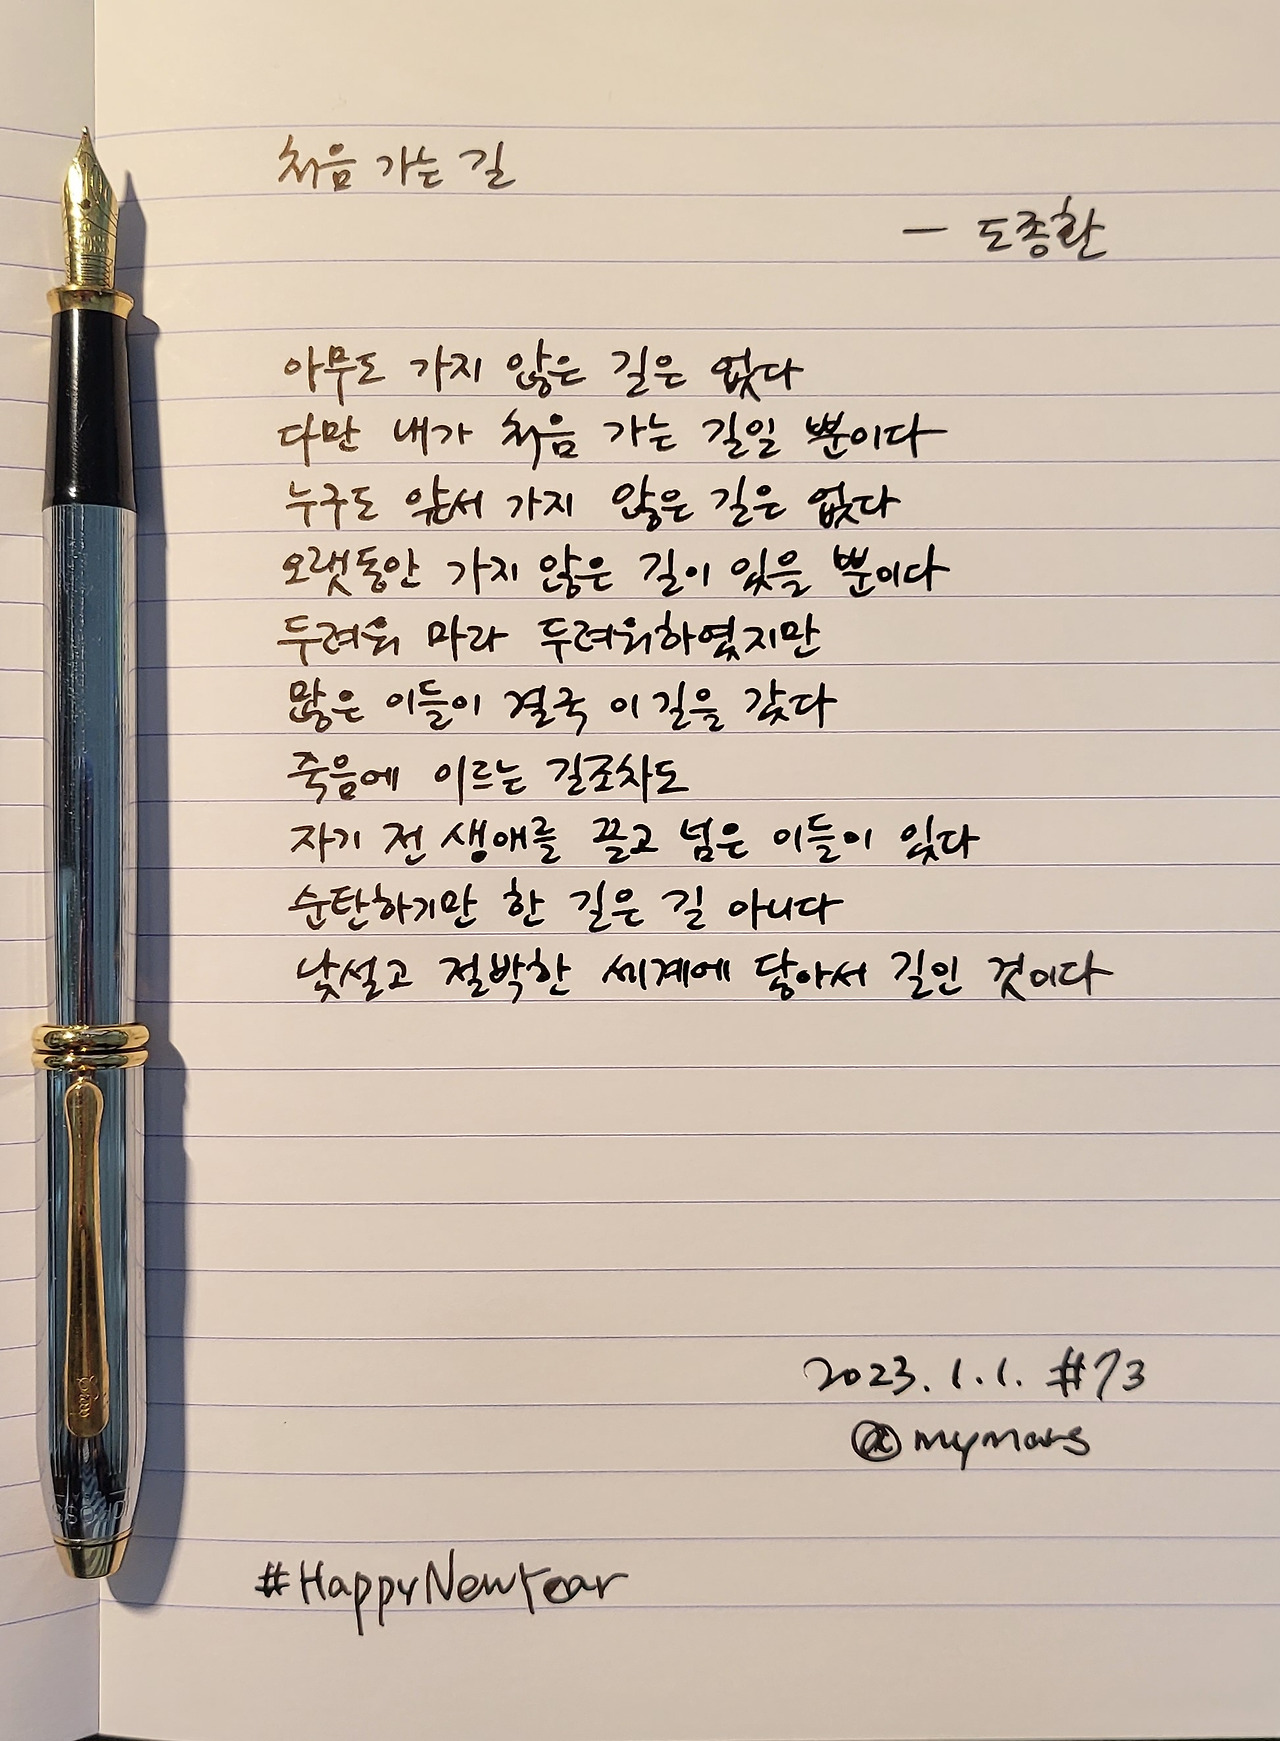 처음 가는 길
— 도종환
아무도 가지 않은 길은 없다
다만 내가 처음 가는 길일 뿐이다
누구도 앞서 가지 않은 길은 없다
오랫동안 가지 않은 길이 있을 뿐이다
두려워 마라 두려워하였지만
많은 이들이 결국 이 길을 갔다
죽음에 이르는 길조차도
자기 전 생애를 끌고 넘은 이들이 있다
순탄하기만 한 길은 길 아니다
낯설고 절박한 세계에 닿아서 길인 것이다
2023.1.1. #73
@mymars
#HappyNewYear
CROSS